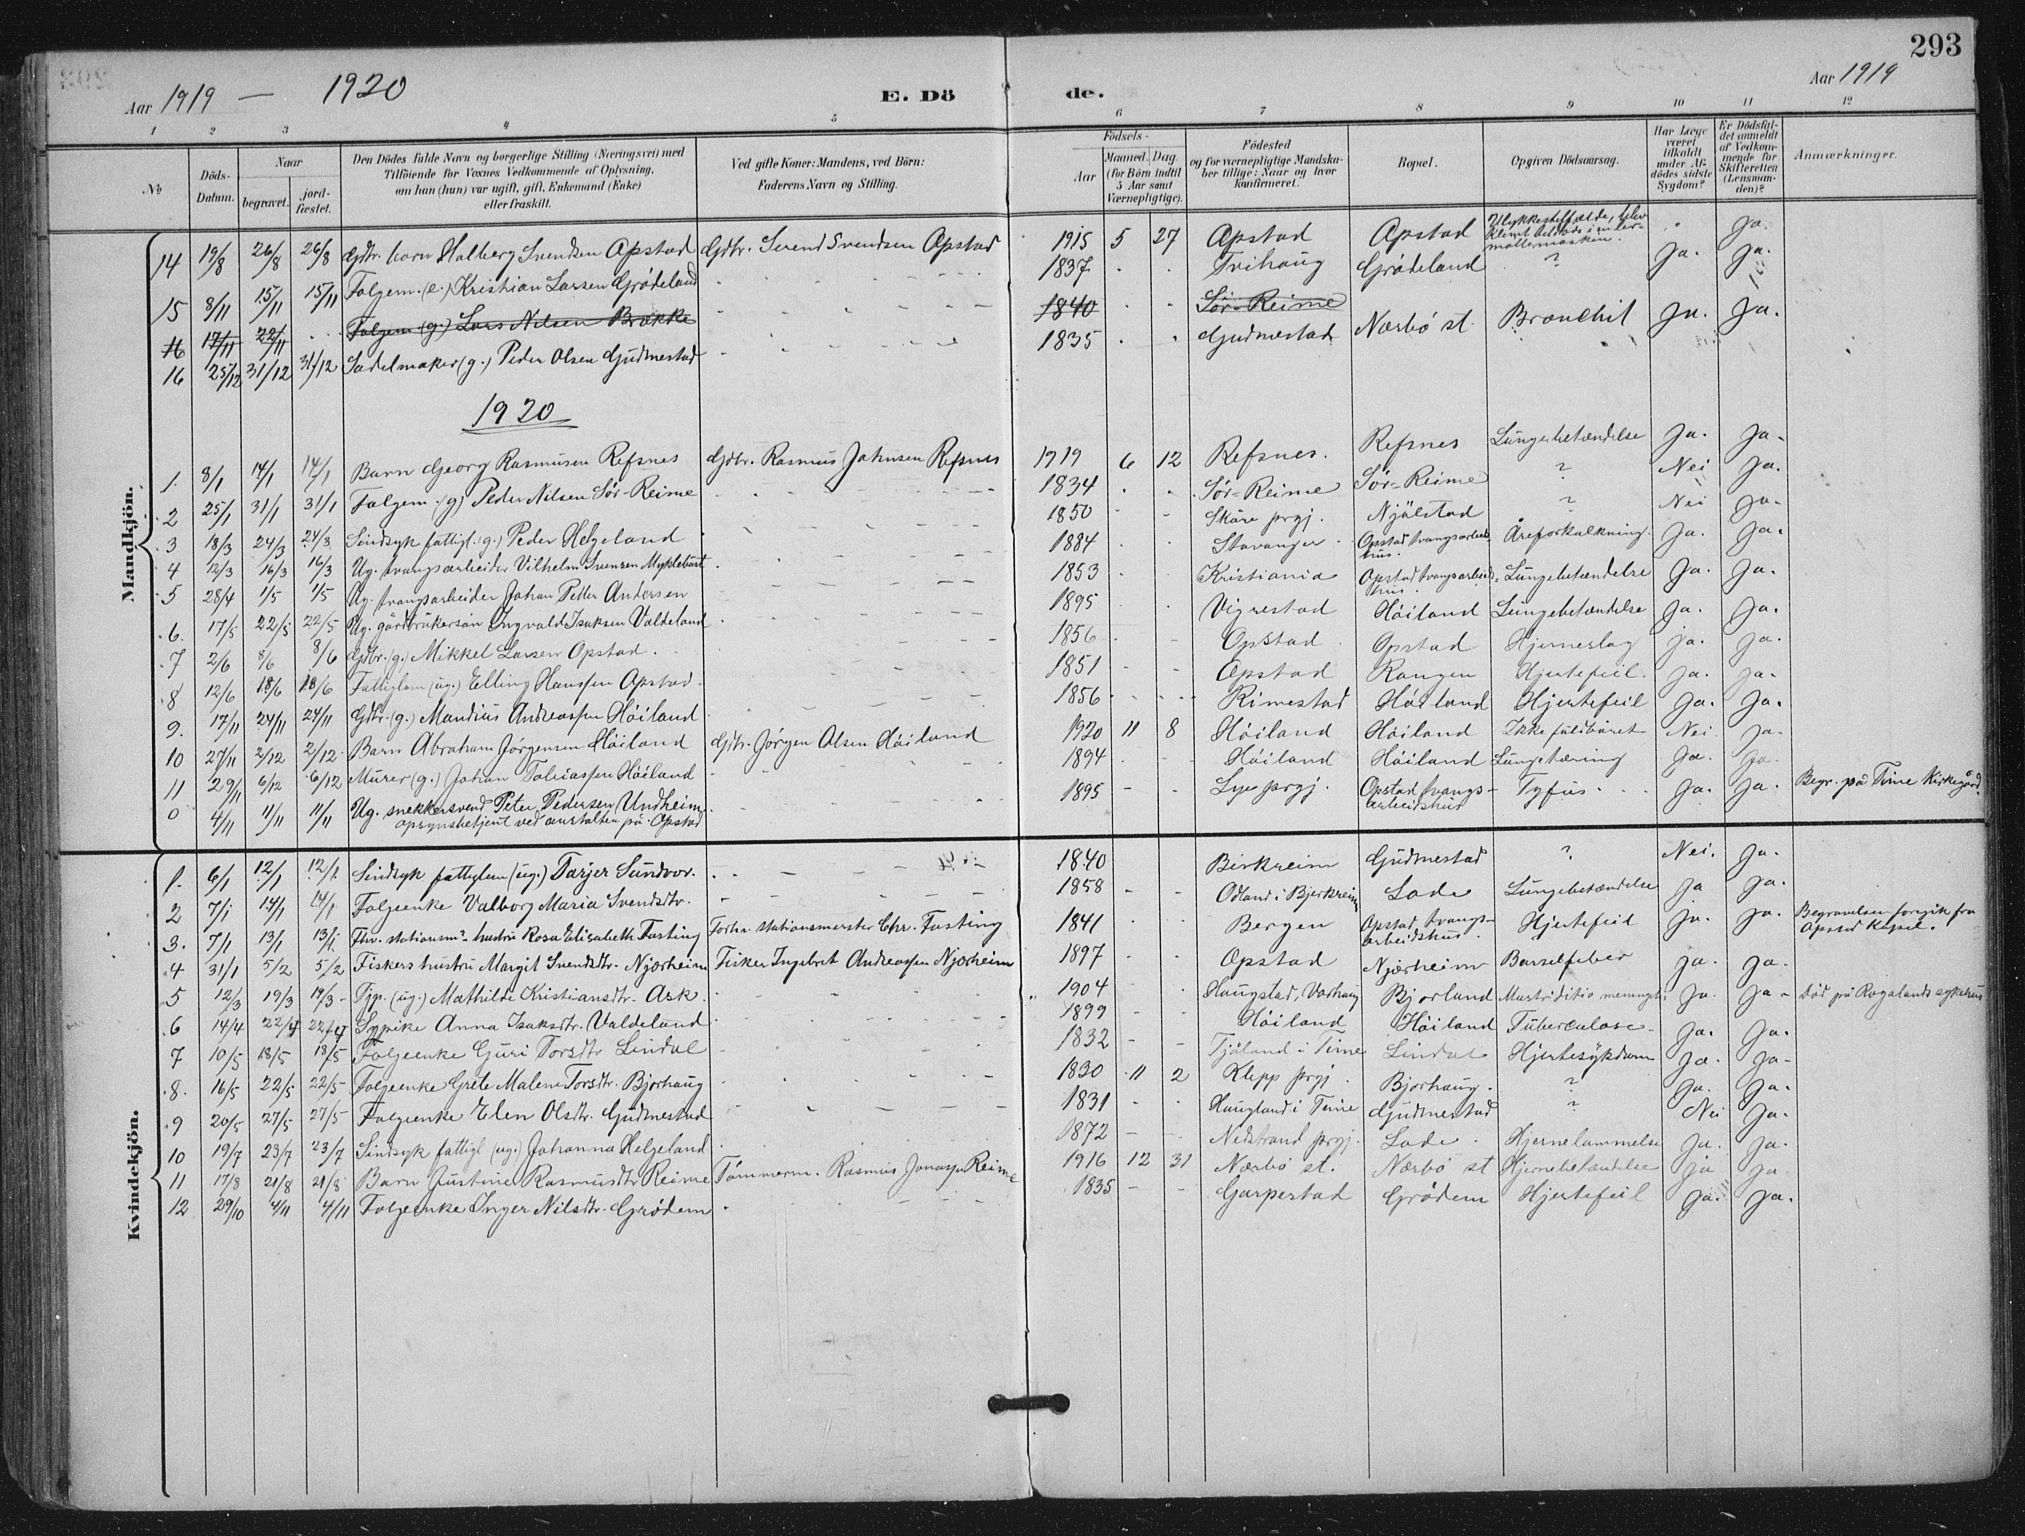 293
Aar 1919 — 1920
E. Dö de.
Aar 1919
1 2 3 4 5 6 7 8 9 10 11 12
No
Döds-Datum.
Naar
begravet.
jord-fæstet.
Den Dödes fulde Navn og borgerlige Stilling (Næringsvei) med
Tilföiende for Voxnes Vedkommende af Oplysning,
om han (hun) var ugift, gift, Enkemand (Enke)
eller fraskilt.
Ved gifte Koner: Mandens, ved Börn:
Faderens Navn og Stilling.
Födsels-
Aar
Maaned. Dag.
(for Börn indtil
5 Aar samt
Værnepligtige).
Födested
og for værnepligtige Mandska-
ber tillige: Naar og hvor
konfirmeret.
Bopæl.
Opgiven Dödsaarsag.
Har Læge
været
tilkaldt
under Af-
dödes sidste
Sygdom?
Er Dödsfal-
det anmeldt
af Vedkom-
mende for
Skifteretten
(Lensman-
den)?
Anmærkninger.
Mandkjön.
14 19/8 26/8 26/8 Gdbr. barn Halberg Svendsen Opstad Gdbr. Svend Svendsen Opstad 1915 5 27 Opstad Opstad Ulykkestilfælde, blev klemt tildøds i en møllemaskin. Ja.
15 8/11 15/11 15/11 Folgem. (e.) Kristian Larsen Grødeland 1837 Tvihaug Grødeland ? Ja. Ja.
16 17/11 22/11 Folgem (g.) Lars Nilsen Brække 1840 Sør-Reime
16 25/12 31/12 31/12 Sadelmaker (g.) Peder Olsen Gudmestad 1835 Gudmestad Nærbø st. Bronchit Ja. Ja.
1920
1. 8/1 14/1 14/1 Barn Georg Rasmusen Refsnes Gdbr. Rasmus Johnsen Refsnes 1919 6 12 Refsnes. Refsnes Lungebetændelse Ja. Ja.
2 25/1 31/1 31/1 Folgem. (g) Peder Nilsen Sør-Reime 1834 Sør-Reime Sør-Reime ? Nei Ja.
3 18/3 24/3 24/3 Sindsyk fattigl. (g.) Peder Helgeland 1850 Skåre prgj. Njålstad ? Nei Ja.
4 12/3 16/3 16/3 Ug. tvangsarbeider Vilhelm Svensen Myklebust 1884 Stavanger Opstad tvangsarbeidshus. Åreforkalkning. Ja. Ja.
5 28/4 1/5 1/5 Ug. tvangsarbeider Johan Petter Andersen 1853 Kristiania Opstad tvangsarbeidshus. Lungebetændelse Ja. Ja.
6. 17/5 22/5 22/5 Ug. gårdbrukersøn Ingvald Isaksen Valdeland 1895 Vigrestad Høiland Lungebetændelse Ja. Ja.
7 2/6 8/6 8/6 Gdbr. (g.) Mikkel Larsen Opstad. 1856 Opstad Opstad Hjerneslag ja. Ja.
8 12/6 18/6 18/6 Fattiglem (ug.) Elling Hanssen Opstad. 1851 Opstad Rongen Hjertefeil. Ja. Ja.
9. 17/11 24/11 24/11 Gdbr. (g.) Mandius Andreassen Høiland 1856 Rimestad Høiland Hjertefeil Ja. Ja.
10 27/11 2/12 2/12 Barn Abraham Jörgensen Høiland Gdbr. Jörgen Olsen Høiland 1920 11 8 Høiland Høiland Ikke fuldbåret Nei Ja.
11 29/11 6/12 6/12 Murer (g.) Johan Tobiassen Høiland 1894 Høiland Høiland Lungetæring Ja. Ja.
0 4/11 11/11 11/11 Ug. snekkersvend Peter Pedersen Undheim, opsynsbetjent ved anstalten på Opstad 1895 Lye prgj. Opstad tvangsarbeidshus Tyfus Ja. Ja. Begr. på Time Kirkegård.
Kvindekjön.
1. 6/1 12/1 12/1 Sindsyk fattiglem (ug.) Tarjer Sundvor. 1840 Birkreim Gudmestad ? Nei. Ja.
2 7/1 14/1 14/1 Folgeenke Valborg Maria Svendsdtr. 1858 Odland i Bjerkreim Lode Lungebetændelse Ja Ja.
3. 7/1 13/1 13/1 Fhv. stationsm. hustru Rosa Elisabeth Fasting Forhv. stationsmester Chr. Fasting 1841 Bergen Opstad tvangsarbeidshus. Hjertefeil Ja. Ja. Begravelsen foregik fra Opstad Kapel.
4 31/1 5/2 5/2 Fiskers hustru Margit Svendsdtr. Njærheim Fisker Ingebret Andreassen Njærheim 1897 Opstad Njærheim Barselfeber Ja. Ja.
5 12/3 19/3 19/3 Tjp. (ug.) Mathilde Kristiansdtr. Ask. 1904 Haugstad, Varhaug Bjorland Ja. Ja. Død på Rogalands sykehus
6 14/4 22/4 22/4 Sypike Anna Isaksdtr. Valdeland 1899 Høiland Høiland Tuberculose Ja. Ja.
7 10/5 18/5 18/5 Folgeenke Guri Torsdtr Lindal 1832 Tjåland i Time Lindal Hjertesykdom Ja. Ja.
8. 16/5 22/5 22/5 Folgeenke Grete Malene Torsdtr. Bjorhaug 1830 11 2 Klepp prgj. Bjorhaug. ? Ja. Ja.
9 20/5 27/5 27/5 Folgeenke Elen Olsdtr. Gudmestad 1831 Haugland i Time Gudmestad ? Nei Ja.
10 19/7 23/7 23/7 Sindsyk fattigl (ug.) Johanna Helgeland 1872 Nedstrand prgj. Lode. Hjernelammelse Ja. Ja.
11 17/8 21/8 21/8 Barn Justine Rasmusdtr Reime Tømmerm. Rasmus Jonassen Reime 1916 12 31 Nærbø st. Nærbø st Hjernebetændelse Ja Ja.
12 29/10 4/11 4/11 Folgeenke Inger Nilsdtr. Grødem 1835 Garpestad Grødem Hjertefeil Ja. Ja.